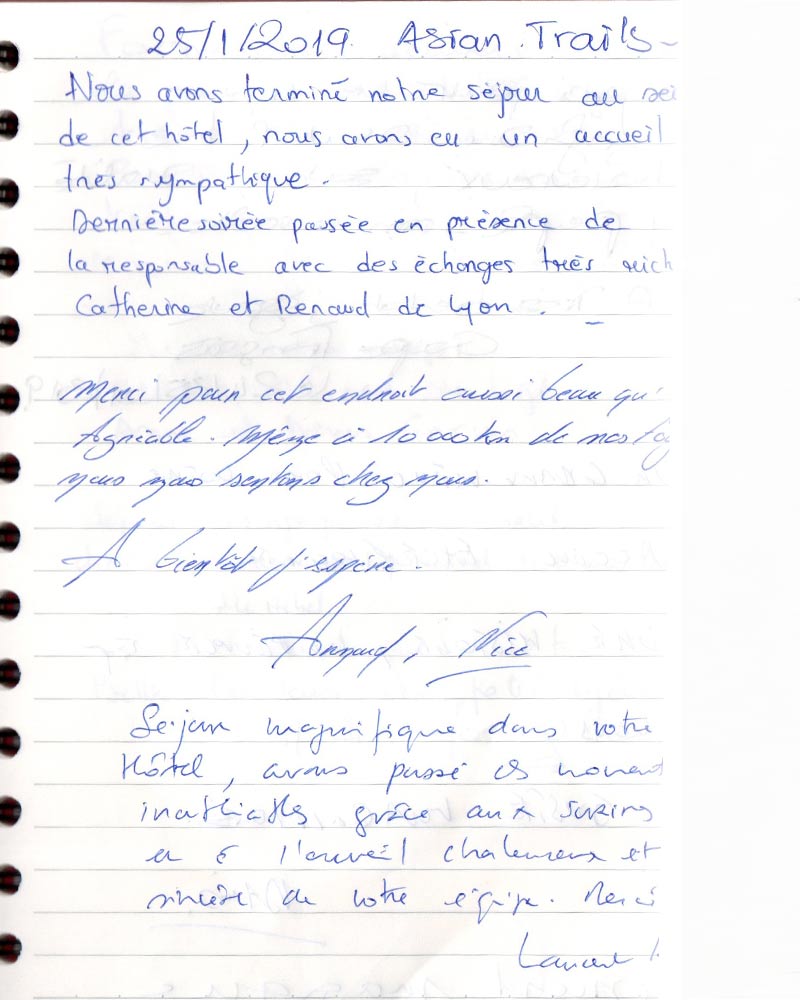 25/1/2019. Asian Trails -
Nous avons terminé notre séjour au sei
de cet hôtel, nous avons eu un accueil
très sympathique.
Dernière soirée passée en présence de
la responsable avec des échanges très rich
Catherine et Renaud de Lyon.
Merci pour cet endroit aussi beau qu'
Agréable. Même à 10 000 km de nos
nous nous sentons chez nous.
A bientôt j'espère.
Arnaud, Nice
Séjour magnifique dans votre
Hôtel, avons passé des moments
grâce aux
et à l'accueil chaleureux et
sincère de votre équipe. Merci
Laurent